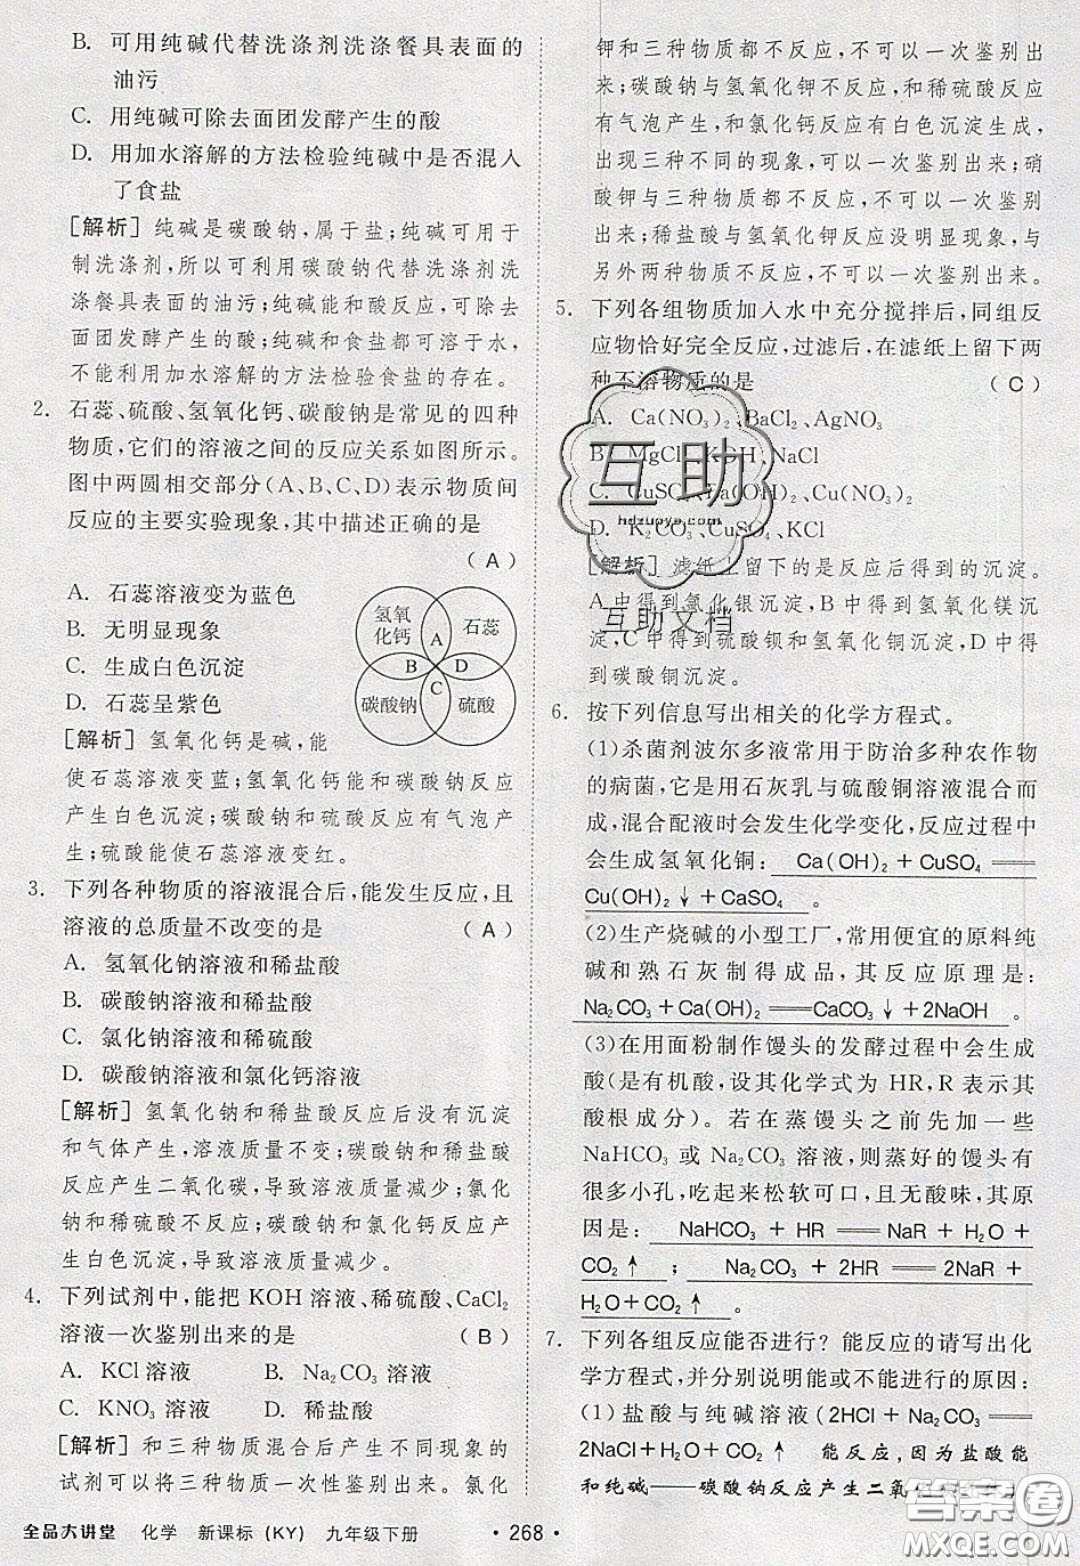 B. 可用纯碱代替洗涤剂洗涤餐具表面的
油污
C. 用纯碱可除去面团发酵产生的酸
D. 用加水溶解的方法检验纯碱中是否混入
了食盐
[解析] 纯碱是碳酸钠,属于盐;纯碱可用于
制洗涤剂,所以可利用碳酸钠代替洗涤剂洗
涤餐具表面的油污;纯碱能和酸反应,可除去
面团发酵产生的酸;纯碱和食盐都可溶于水,
不能利用加水溶解的方法检验食盐的存在。
2. 石蕊、硫酸、氢氧化钙、碳酸钠是常见的四种
物质,它们的溶液之间的反应关系如图所示。
图中两圆相交部分(A、B、C、D)表示物质间
反应的主要实验现象,其中描述正确的是
( A )
A. 石蕊溶液变为蓝色
B. 无明显现象
C. 生成白色沉淀
D. 石蕊呈紫色
氢氧
化钙
A
石蕊
B
D
C
碳酸钠
硫酸
[解析] 氢氧化钙是碱,能
使石蕊溶液变蓝;氢氧化钙能和碳酸钠反应
产生白色沉淀;碳酸钠和硫酸反应有气泡产
生;硫酸能使石蕊溶液变红。
3. 下列各种物质的溶液混合后,能发生反应,且
溶液的总质量不改变的是 ( A )
A. 氢氧化钠溶液和稀盐酸
B. 碳酸钠溶液和稀盐酸
C. 氯化钠溶液和稀硫酸
D. 碳酸钠溶液和氯化钙溶液
[解析] 氢氧化钠和稀盐酸反应后没有沉淀
和气体产生,溶液质量不变;碳酸钠和稀盐酸
反应产生二氧化碳,导致溶液质量减少;氯化
钠和稀硫酸不反应;碳酸钠和氯化钙反应产
生白色沉淀,导致溶液质量减少。
4. 下列试剂中,能把 KOH 溶液、稀硫酸、CaCl₂
溶液一次鉴别出来的是 ( B )
A. KCl 溶液 B. Na₂CO₃ 溶液
C. KNO₃ 溶液 D. 稀盐酸
[解析] 和三种物质混合后产生不同现象的
试剂可以将三种物质一次性鉴别出来。氯化
钾和三种物质都不反应,不可以一次鉴别出
来;碳酸钠与氢氧化钾不反应,和稀硫酸反应
有气泡产生,和氯化钙反应有白色沉淀生成,
出现三种不同的现象,可以一次鉴别出来;硝
酸钾与三种物质都不反应,不可以一次鉴别
出来;稀盐酸与氢氧化钾反应没明显现象,与
另外两种物质不反应,不可以一次鉴别出来。
5. 下列各组物质加入水中充分搅拌后,同组反
应物恰好完全反应,过滤后,在滤纸上留下两
种不溶物质的是 ( C )
A. Ca(NO₃)₂、BaCl₂、AgNO₃
B. MgCl₂、KOH、NaCl
C. CuSO₄、Ba(OH)₂、Cu(NO₃)₂
D. K₂CO₃、CuSO₄、KCl
[解析] 滤纸上留下的是反应后得到的沉淀。
A中得到氯化银沉淀,B中得到氢氧化镁沉
淀,C中得到硫酸钡和氢氧化铜沉淀,D中得
到碳酸铜沉淀。
6. 按下列信息写出相关的化学方程式。
(1)杀菌剂波尔多液常用于防治多种农作物
的病菌,它是用石灰乳与硫酸铜溶液混合而
成,混合配液时会发生化学变化,反应过程中
会生成氢氧化铜: Ca(OH)₂＋CuSO₄══
Cu(OH)₂↓＋CaSO₄ 。
(2)生产烧碱的小型工厂,常用便宜的原料纯
碱和熟石灰制得成品,其反应原理是:
Na₂CO₃＋Ca(OH)₂══CaCO₃↓＋2NaOH 。
(3)在用面粉制作馒头的发酵过程中会生成
酸(是有机酸,设其化学式为 HR,R 表示其
酸根成分)。若在蒸馒头之前先加一些
NaHCO₃ 或 Na₂CO₃ 溶液,则蒸好的馒头有
很多小孔,吃起来松软可口,且无酸味,其原
因是: NaHCO₃＋HR══NaR＋H₂O＋
CO₂↑ ; Na₂CO₃＋2HR══2NaR＋
H₂O＋CO₂↑ 。
7. 下列各组反应能否进行? 能反应的请写出化
学方程式,并分别说明能或不能进行的原因:
(1)盐酸与纯碱溶液(2HCl＋Na₂CO₃══
2NaCl＋H₂O＋CO₂↑ 能反应,因为盐酸能
和纯碱——碳酸钠反应产生二氧化碳
互助
hdzuoye.com
互助文档
答案圈
全品大讲堂 化学 新课标(KY) 九年级下册 · 268 ·